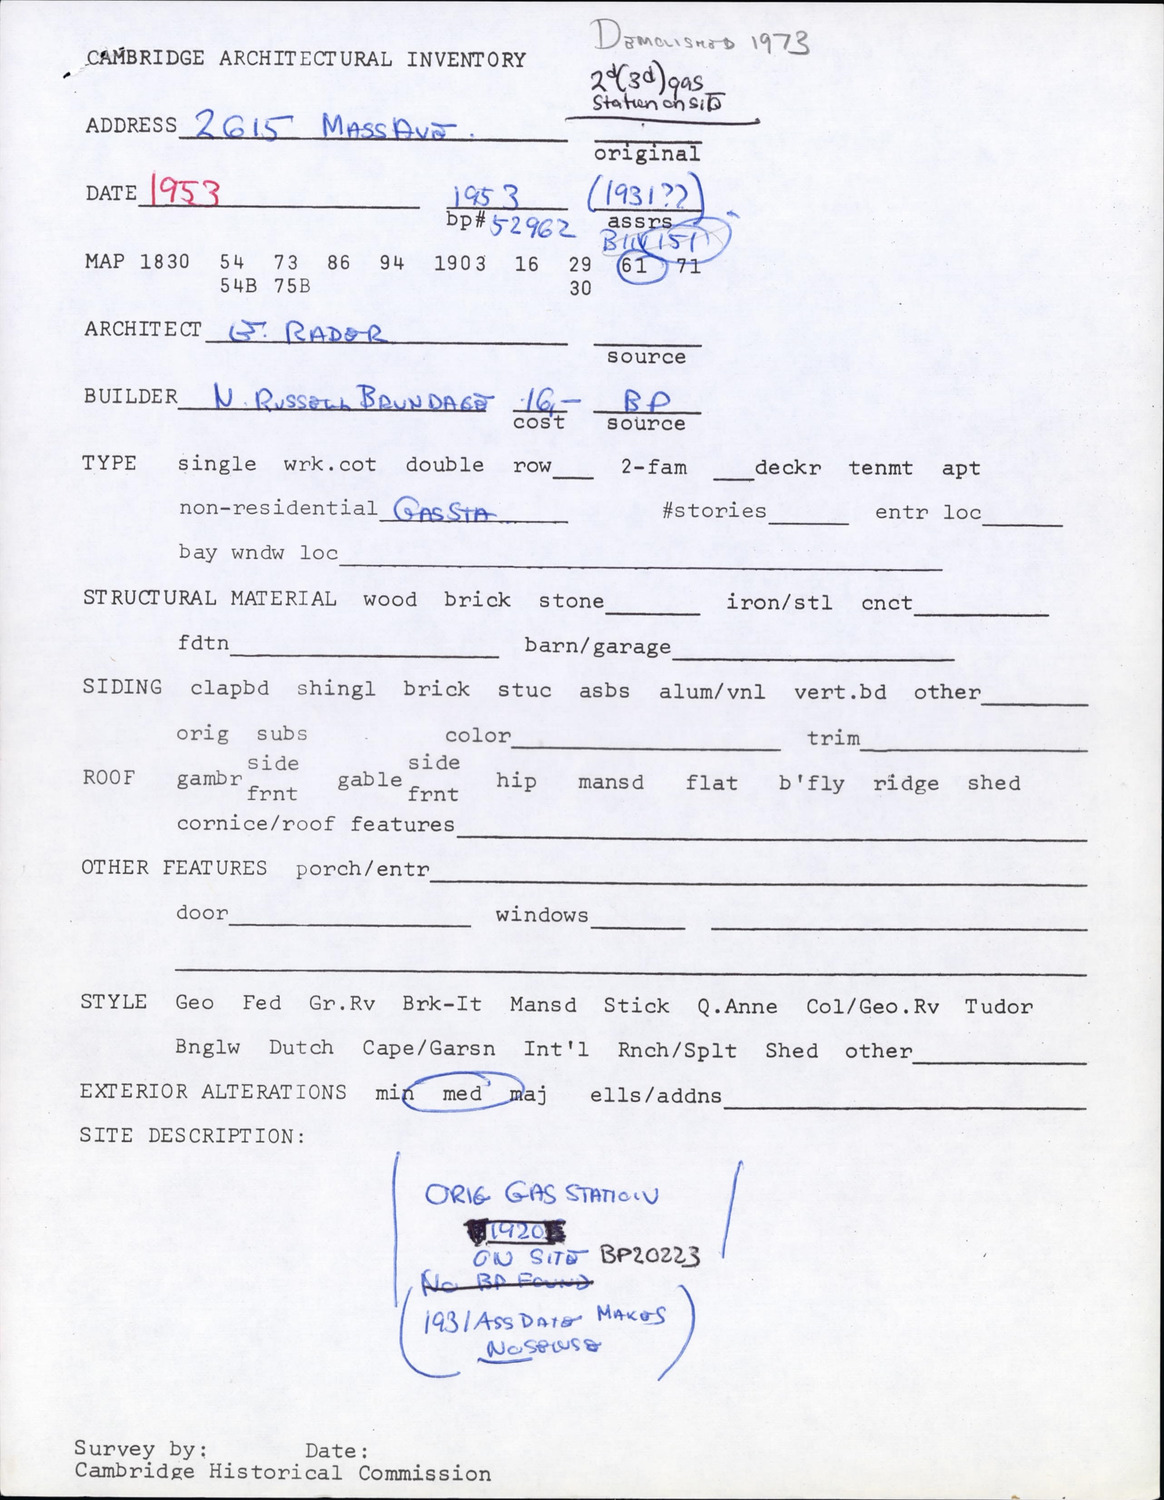 DEMOLISHED 1973
CAMBRIDGE ARCHITECTURAL INVENTORY
2d(3d) gas
Station on site
ADDRESS 2615 MASS AVE.
original
DATE 1953 1953 (1931??)
bp# 52962 assrs
151
MAP 1830 54 73 86 94 1903 16 29 61 71
54B 75B 30
ARCHITECT E. RADER
source
BUILDER N. RUSSELL BRUNDAGE 16,- BP
cost source
TYPE single wrk.cot double row 2-fam deckr tenmt apt
non-residential GAS STA #stories entr loc
bay wndw loc
STRUCTURAL MATERIAL wood brick stone iron/stl cnct
fdtn barn/garage
SIDING clapbd shingl brick stuc asbs alum/vnl vert.bd other
orig subs color trim
side side
ROOF gambr gable hip mansd flat b'fly ridge shed
frnt frnt
cornice/roof features
OTHER FEATURES porch/entr
door windows
STYLE Geo Fed Gr.Rv Brk-It Mansd Stick Q.Anne Col/Geo.Rv Tudor
Bnglw Dutch Cape/Garsn Int'l Rnch/Splt Shed other
EXTERIOR ALTERATIONS min med maj ells/addns
SITE DESCRIPTION:
ORIG GAS STATION
1920
ON SITE BP20223
No BP FOUND
(1931 ASS DATE MAKES
NO SENSE)
Survey by: Date:
Cambridge Historical Commission